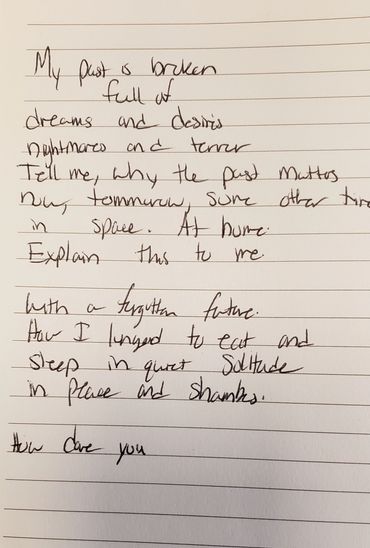 My past is broken
full of
dreams and desires
nightmares and terror
Tell me, why the past matters
now, tommorow, some other time
in space. At home.
Explain this to me
with a forgotten future.
How I longed to eat and
sleep in quiet solitude
in peace and shambles.
How dare you